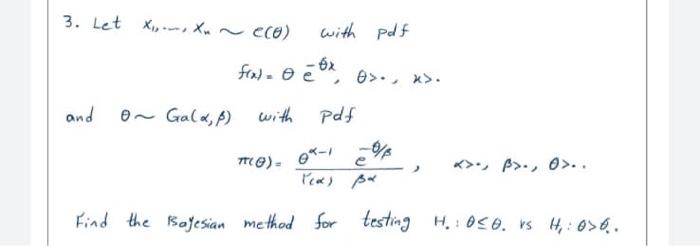 3. Let x₁, ..., xₙ ~ e(θ) with pdf
f(x) = θ e^{-θx}, θ>0, x>0
and θ ~ Ga(α, β) with pdf
π(θ) = θ^{α-1} e^{-θ/β} / Γ(α) β^α, α>0, β>0, θ>0.
Find the Bayesian method for testing H₀: θ≤θ₀ vs H₁: θ>θ₀.